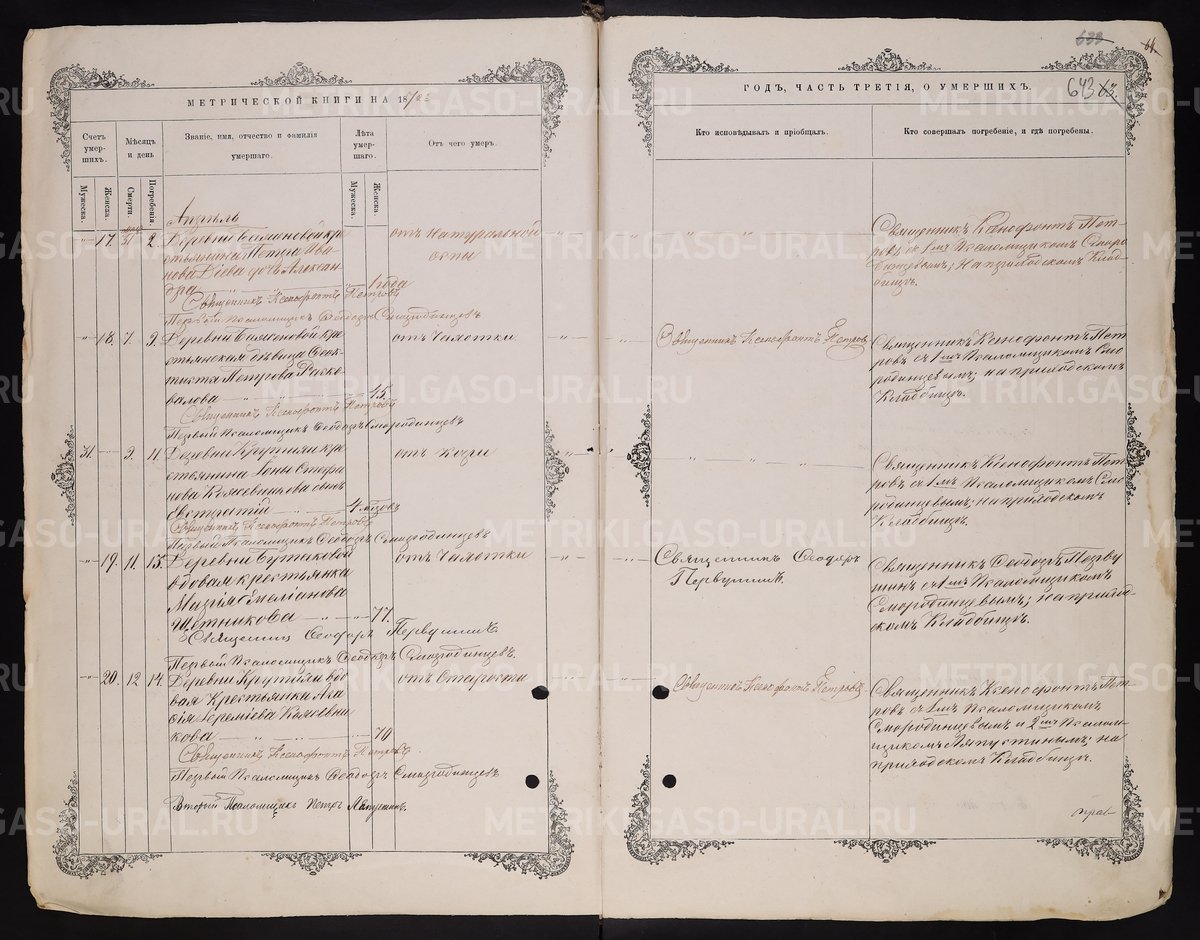 МЕТРИЧЕСКОЙ КНИГИ НА 18
Счетъ умерших.
Мѣсяцъ и день
Званіе, имя, отчество и фамилія умершаго.
Лѣта умершаго.
Отъ чего умеръ.
Мужеска.
Женска.
Смерти.
Погребенія.
Мужеска.
Женска.
Апрѣль
17. 31 2. Деревни Баляновой кре
стьянина Петра Ива
нова дочь Алексан
дра 1 года
отъ натуральной
оспы
Священникъ Ксенофонтъ Петровъ
Первый Псаломщикъ Ѳеодоръ Смородинцевъ
18. 7. 9. Деревни Баляновой кре
стьянская дѣвица Ѳеок
тиста Петрова
45.
отъ Чахотки
Священникъ Ксенофонтъ Петровъ
Первый Псаломщикъ Ѳеодоръ Смородинцевъ
31. 9. 11. Деревни Крутихи кре
стьянина Іоны
сынъ
Евстратій
отъ кори
Священникъ Ксенофонтъ Петровъ
Первый Псаломщикъ Ѳеодоръ Смородинцевъ
19. 11. 13. Деревни Бутаковой
вдовая крестьянка
Марія Емеліанова
77.
отъ Чахотки
Священникъ Ѳеодоръ Первушинъ.
Первый Псаломщикъ Ѳеодоръ Смородинцевъ.
20. 12. 14. Деревни Крутихи вдо
вая Крестьянка Ага
ѳія Іереміева Кожевни
кова 70
отъ Старости
Священникъ Ксенофонтъ Петровъ.
Первый Псаломщикъ Ѳеодоръ Смородинцевъ
Второй Псаломщикъ Петръ Ляпустинъ.
633
643 63.
ГОДЪ, ЧАСТЬ ТРЕТІЯ, О УМЕРШИХЪ.
Кто исповѣдывалъ и пріобщалъ.
Кто совершалъ погребеніе, и гдѣ погребены.
Священникъ Ксенофонтъ Пет
ровъ съ 1мъ Псаломщикомъ Сморо
динцевымъ; На приходскомъ Клад-
бищѣ.
Священникъ Ксенофонтъ Петровъ
Священникъ Ксенофонтъ Пет
ровъ съ 1мъ Псаломщикомъ Смо
родинцевымъ; на приходскомъ
Кладбищѣ.
Священникъ Ксенофонтъ Пет
ровъ съ 1мъ Псаломщикомъ Смо
родинцевымъ; на приходскомъ
Кладбищѣ.
Священникъ Ѳеодоръ
Первушинъ.
Священникъ Ѳеодоръ Перву
шинъ съ 1мъ Псаломщикомъ
Смородинцевымъ; на прихо
дскомъ Кладбищѣ.
Священникъ Ксенофонтъ Петровъ.
Священникъ Ксенофонтъ Пет
ровъ съ 1мъ Псаломщикомъ
Смородинцевымъ и 2мъ Псалом-
щикомъ Ляпустинымъ; на
приходскомъ Кладбищѣ.
METRIKI.GASO-URAL.RU